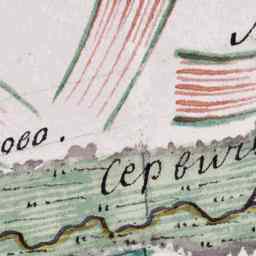 ово.
Сервич